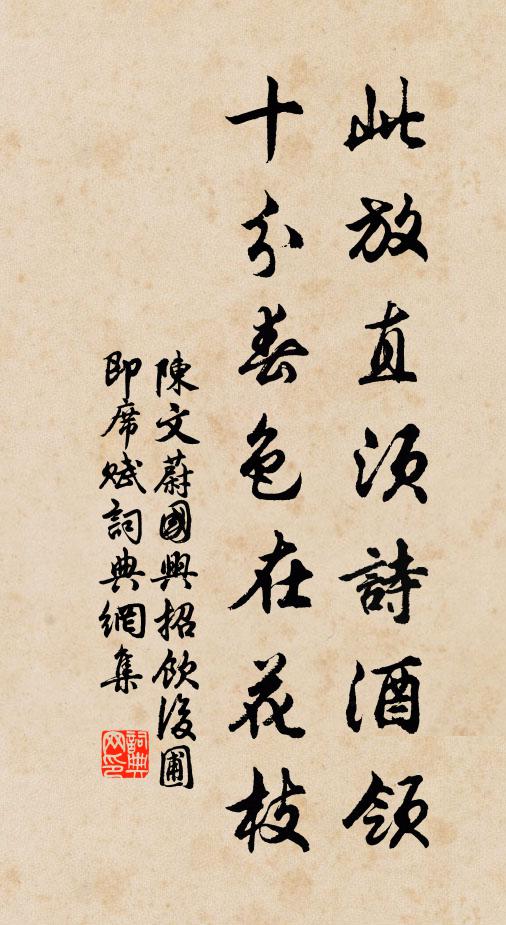 此放直須詩酒領
十分春色在花枝
陳文蔚國興招飲後圃
即席賦詞典網集
詞典網印